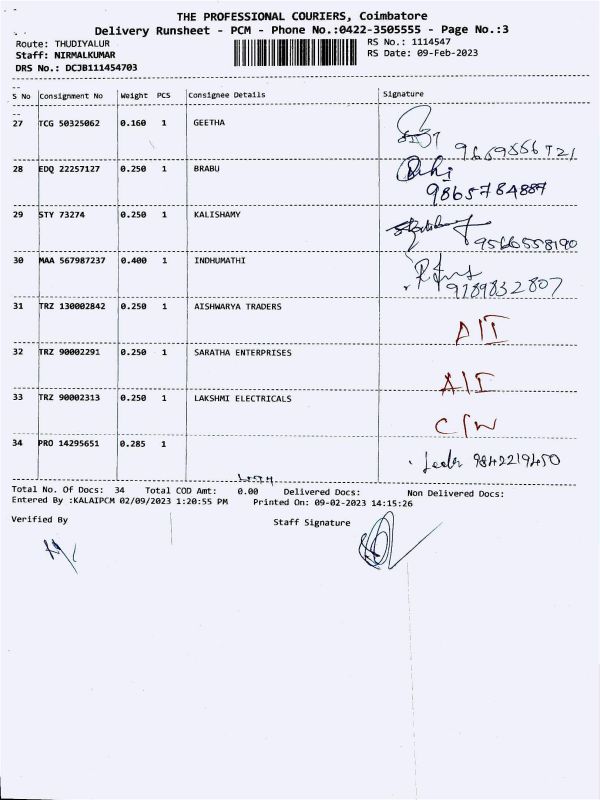 THE PROFESSIONAL COURIERS, Coimbatore
Delivery Runsheet - PCM - Phone No.:0422-3505555 - Page No.:3
Route: THUDIYALUR RS No.: 1114547
Staff: NIRMALKUMAR RS Date: 09-Feb-2023
DRS No.: DCJB111454703
S No Consignment No Weight PCS Consignee Details Signature
27 TCG 50325062 0.160 1 GEETHA
9659556721
28 EDQ 22257127 0.250 1 BRABU
9865784887
29 STY 73274 0.250 1 KALISHAMY
9566558190
30 MAA 567987237 0.400 1 INDHUMATHI
9789832807
31 TRZ 130002842 0.250 1 AISHWARYA TRADERS
D/I
32 TRZ 90002291 0.250 1 SARATHA ENTERPRISES
A/I
33 TRZ 90002313 0.250 1 LAKSHMI ELECTRICALS
C/W
34 PRO 14295651 0.285 1
9842219450
Total No. Of Docs: 34 Total COD Amt: 0.00 Delivered Docs: Non Delivered Docs:
Entered By :KALAIPCM 02/09/2023 1:20:55 PM Printed On: 09-02-2023 14:15:26
Verified By Staff Signature